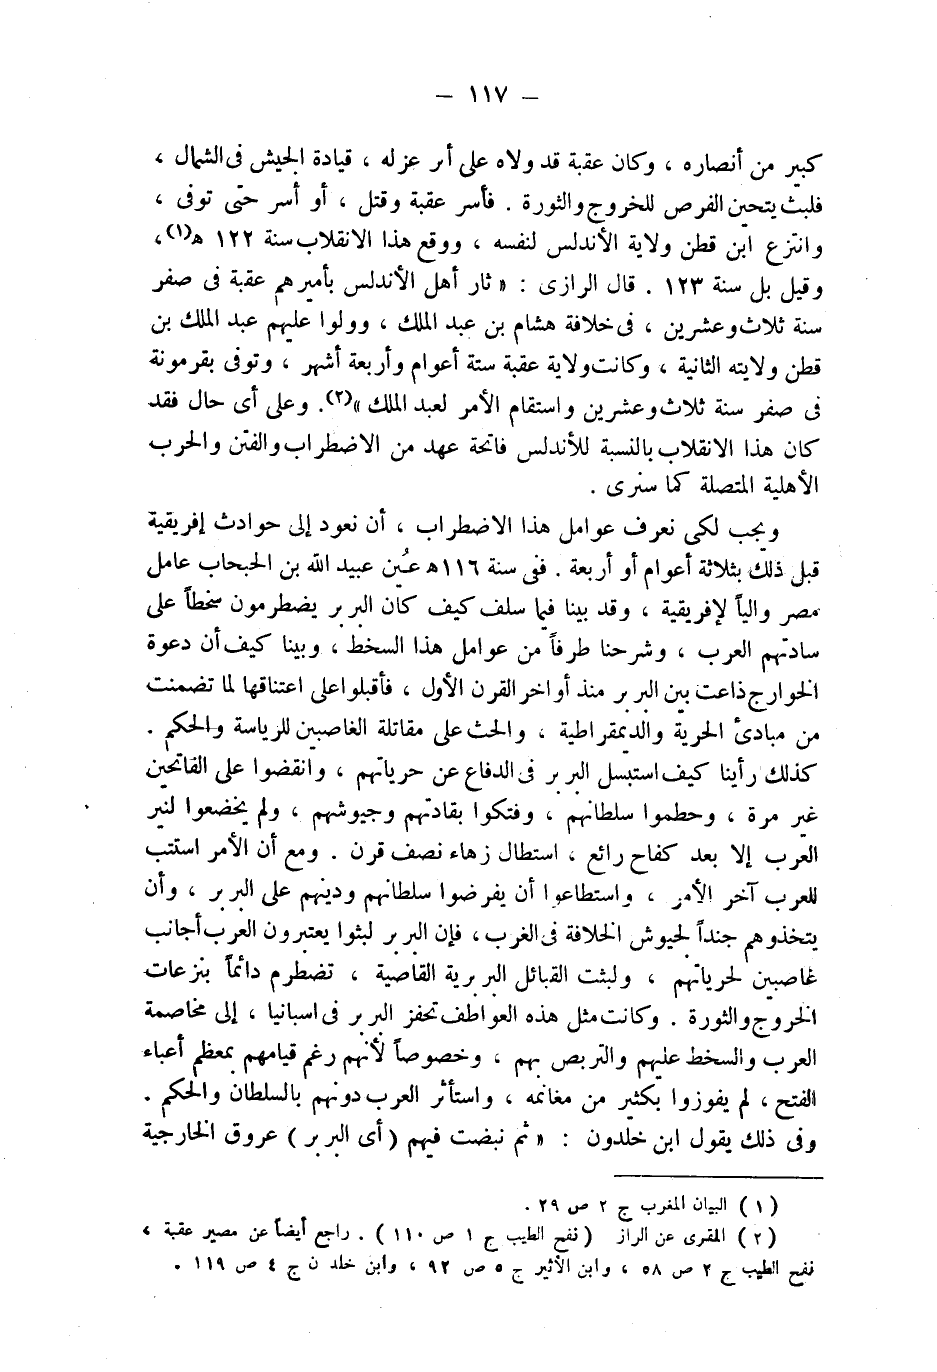 — ١١٧ —
كبير من أنصاره ، وكان عقبة قد ولاه على أثر عزله ، قيادة الجيش فى الشمال ،
فلبث يتحين الفرص للخروج والثورة . فأسر عقبة وقتل ، أو أسر حتى توفى ،
وانتزع ابن قطن ولاية الأندلس لنفسه ، ووقع هذا الانقلاب سنة ١٢٢ ه(١)،
وقيل بل سنة ١٢٣ . قال الرازى : « ثار أهل الأندلس بأميرهم عقبة فى صفر
سنة ثلاث وعشرين ، فى خلافة هشام بن عبد الملك ، وولوا عليهم عبد الملك بن
قطن ولايته الثانية ، وكانت ولاية عقبة ستة أعوام وأربعة أشهر ، وتوفى بقرمونة
فى صفر سنة ثلاث وعشرين واستقام الأمر لعبد الملك »(٢). وعلى أى حال فقد
كان هذا الانقلاب بالنسبة للأندلس فاتحة عهد من الاضطراب والفتن والحرب
الأهلية المتصلة كما سنرى .
ويجب لكى نعرف عوامل هذا الاضطراب ، أن نعود إلى حوادث إفريقية
قبل ذلك بثلاثة أعوام أو أربعة . ففى سنة ١١٦ ه عُين عبيد الله بن الحبحاب عامل
مصر والياً لإفريقية ، وقد بينا فيما سلف كيف كان البربر يضطرمون سخطاً على
سادتهم العرب ، وشرحنا طرفاً من عوامل هذا السخط ، وبينا كيف أن دعوة
الخوارج ذاعت بين البربر منذ أواخر القرن الأول ، فأقبلوا على اعتناقها لما تضمنت
من مبادئ الحرية والديمقراطية ، والحث على مقاتلة الغاصبين للرياسة والحكم .
كذلك رأينا كيف استبسل البربر فى الدفاع عن حرياتهم ، وانقضوا على الفاتحين
غير مرة ، وحطموا سلطانهم ، وفتكوا بقادتهم وجيوشهم ، ولم يخضعوا لنير
العرب إلا بعد كفاح رائع ، استطال زهاء نصف قرن . ومع أن الأمر استتب
للعرب آخر الأمر ، واستطاعوا أن يفرضوا سلطانهم ودينهم على البربر ، وأن
يتخذوهم جنداً لجيوش الخلافة فى الغرب ، فإن البربر لبثوا يعتبرون العرب أجانب
غاصبين لحرياتهم ، ولبثت القبائل البربرية القاصية ، تضطرم دائماً بنزعات
الخروج والثورة . وكانت مثل هذه العواطف تحفز البربر فى اسبانيا ، إلى مخاصمة
العرب والسخط عليهم والتربص بهم ، وخصوصاً لأنهم رغم قيامهم بمعظم أعباء
الفتح ، لم يفوزوا بكثير من مغانمه ، واستأثر العرب دونهم بالسلطان والحكم .
وفى ذلك يقول ابن خلدون : « ثم نبضت فيهم ( أى البربر ) عروق الخارجية
( ١ ) البيان المغرب ج ٢ ص ٢٩ .
( ٢ ) المقرى عن الراز ( نفح الطيب ج ١ ص ١١٠ ) . راجع أيضاً عن مصير عقبة ،
نفح الطيب ج ٢ ص ٥٨ ، وابن الأثير ج ٥ ص ٩٢ ، وابن خلد ن ج ٤ ص ١١٩ .